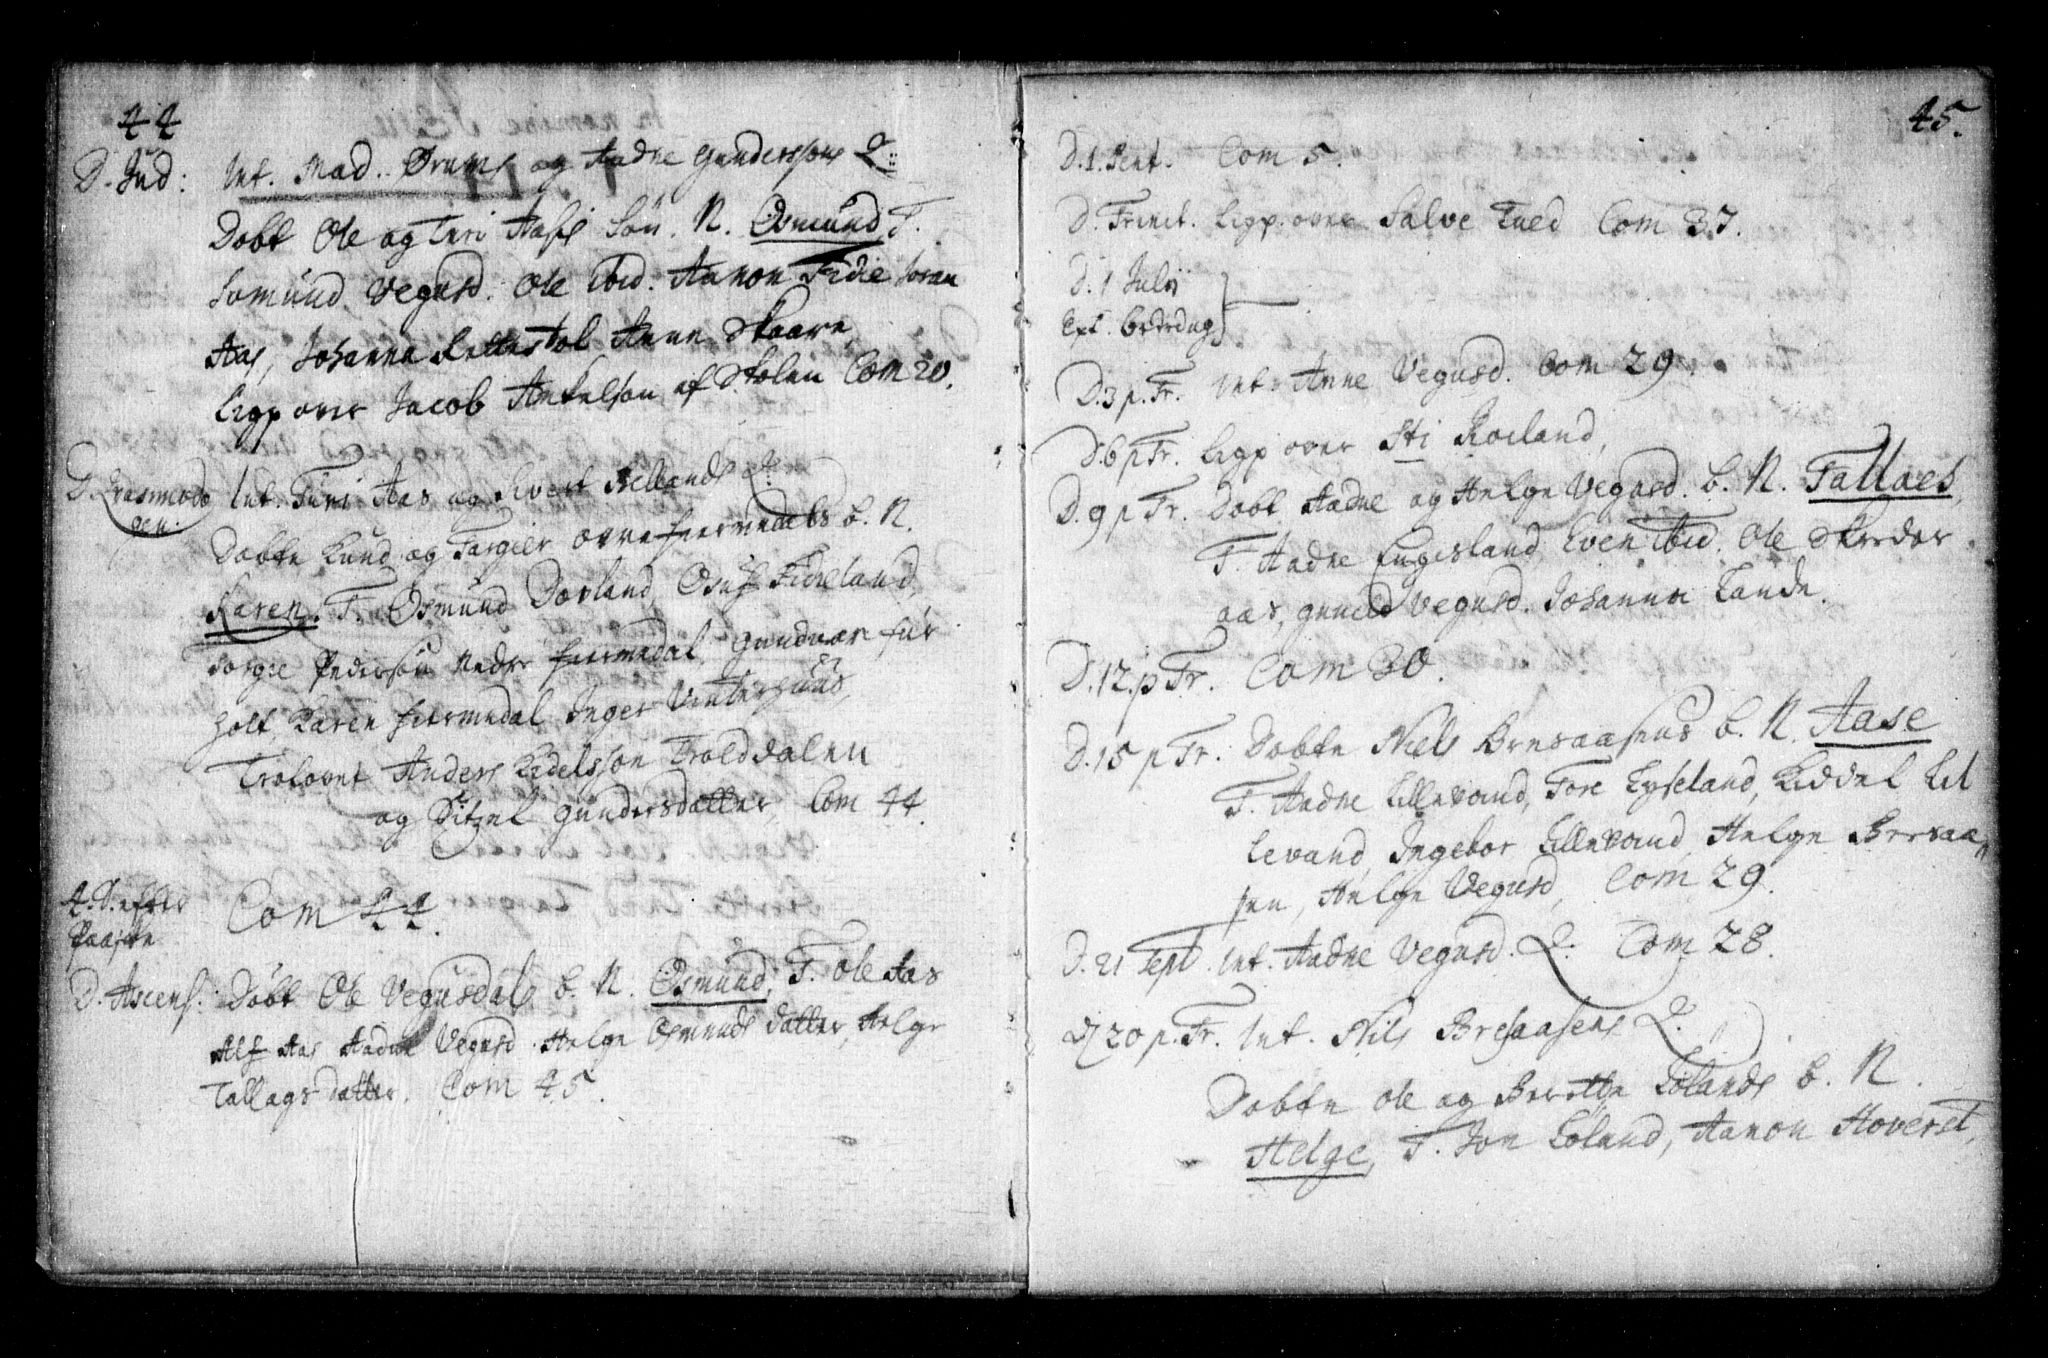 44
D. Jud: Int. Mad. Orums og Aadne Gunderssons Q.
Dobt Ole og Turi Aases Sön. N. Osmund F.
Somund Vegusd. Ole ibid. Aanon Fidie Joran
Aas, Johanna Rettestol Anne Skaare,
Ligp over Jacob Ankelson af Stolen Com 20.
D. Qvasimodo Int. Turi Aas og Sivert Rellands Q.
gen. Dobte Knud og Torgier ovre fiermedals b. N.
Karen. F. Osmund Dovland, Osuf Fidieland,
Torgie Pederson Neder fiermedal. Gundvor fur
holt, Karen fiermedal Inger Vinterhuus,
Trolovet Anders Kidelsson Trolddalen
og Sitzel Gundersdatter, Com 44.
4. D. efter Com 44.
Paaske
D. Ascens. Dobt Ole Vegusdals b. N. Osmund, F. Ole Aas
Alf Aas Aadne Vegusd. Helge Osmunds datter, Helge
Tallags datter. Com 45.
45.
D. 1. Pent. Com 5.
D. Trinit. Ligp. over Salve Tued Com 37.
D. 1 Julij
Ext. bededag
D. 3 p. Tr. Int. Anne Vegusd. Com 29.
D. 6 p Tr. Ligp over Sti Roiland,
D. 9 p Tr. Dobt Aadne og Helge Vegusd. b. N. Tallaes,
F. Aadne Engesland, Even ibid. Ole Skreder
aas, Guneld Vegusd. Johanna Lande.
D. 12. p Tr. Com 30.
D. 15 p Tr. Dobte Niels Bresaasens b. N. Aase
F. Aadne Lillevand, Tore Eyseland, Kiddel Lil
levand, Ingebor Lillevand, Helge Bresaa,,
sen, Helge Vegusd, Com 29.
D. 21 Sept. Int. Aadne Vegusd. Q. Com 28.
D 20 p. Tr. Int. Nils Bresaasens Q.
Dobte Ole og Berette Lölands b. N.
Helge, F. Jon Löland, Aanon Hoverst,